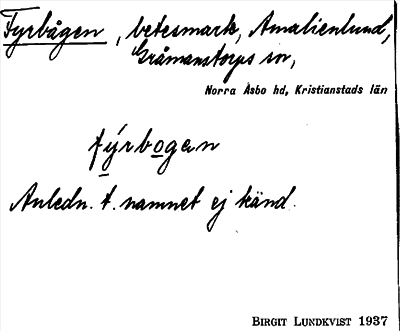 Fyrbågen, betesmark, Amalienlund,
Gråmanstorps sn,
Norra Åsbo hd, Kristianstads län
fýrbogan
Anledn. t. namnet ej känd.
BIRGIT LUNDKVIST 1937